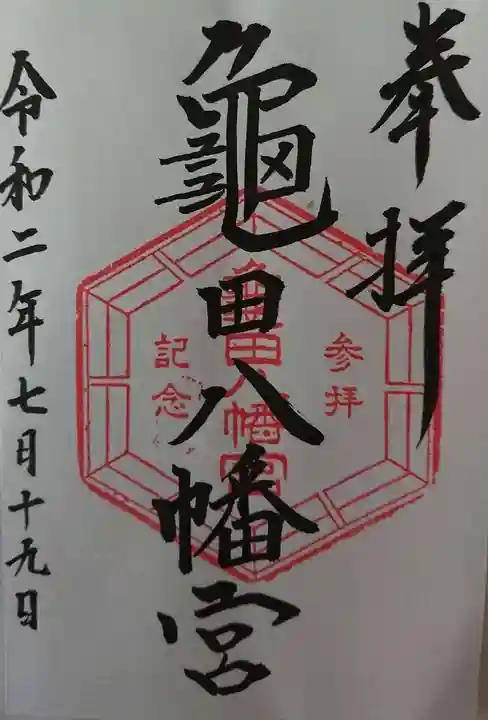 奉拝
龜田八幡宮
令和二年七月十九日
参拝
記念
龜田八幡宮